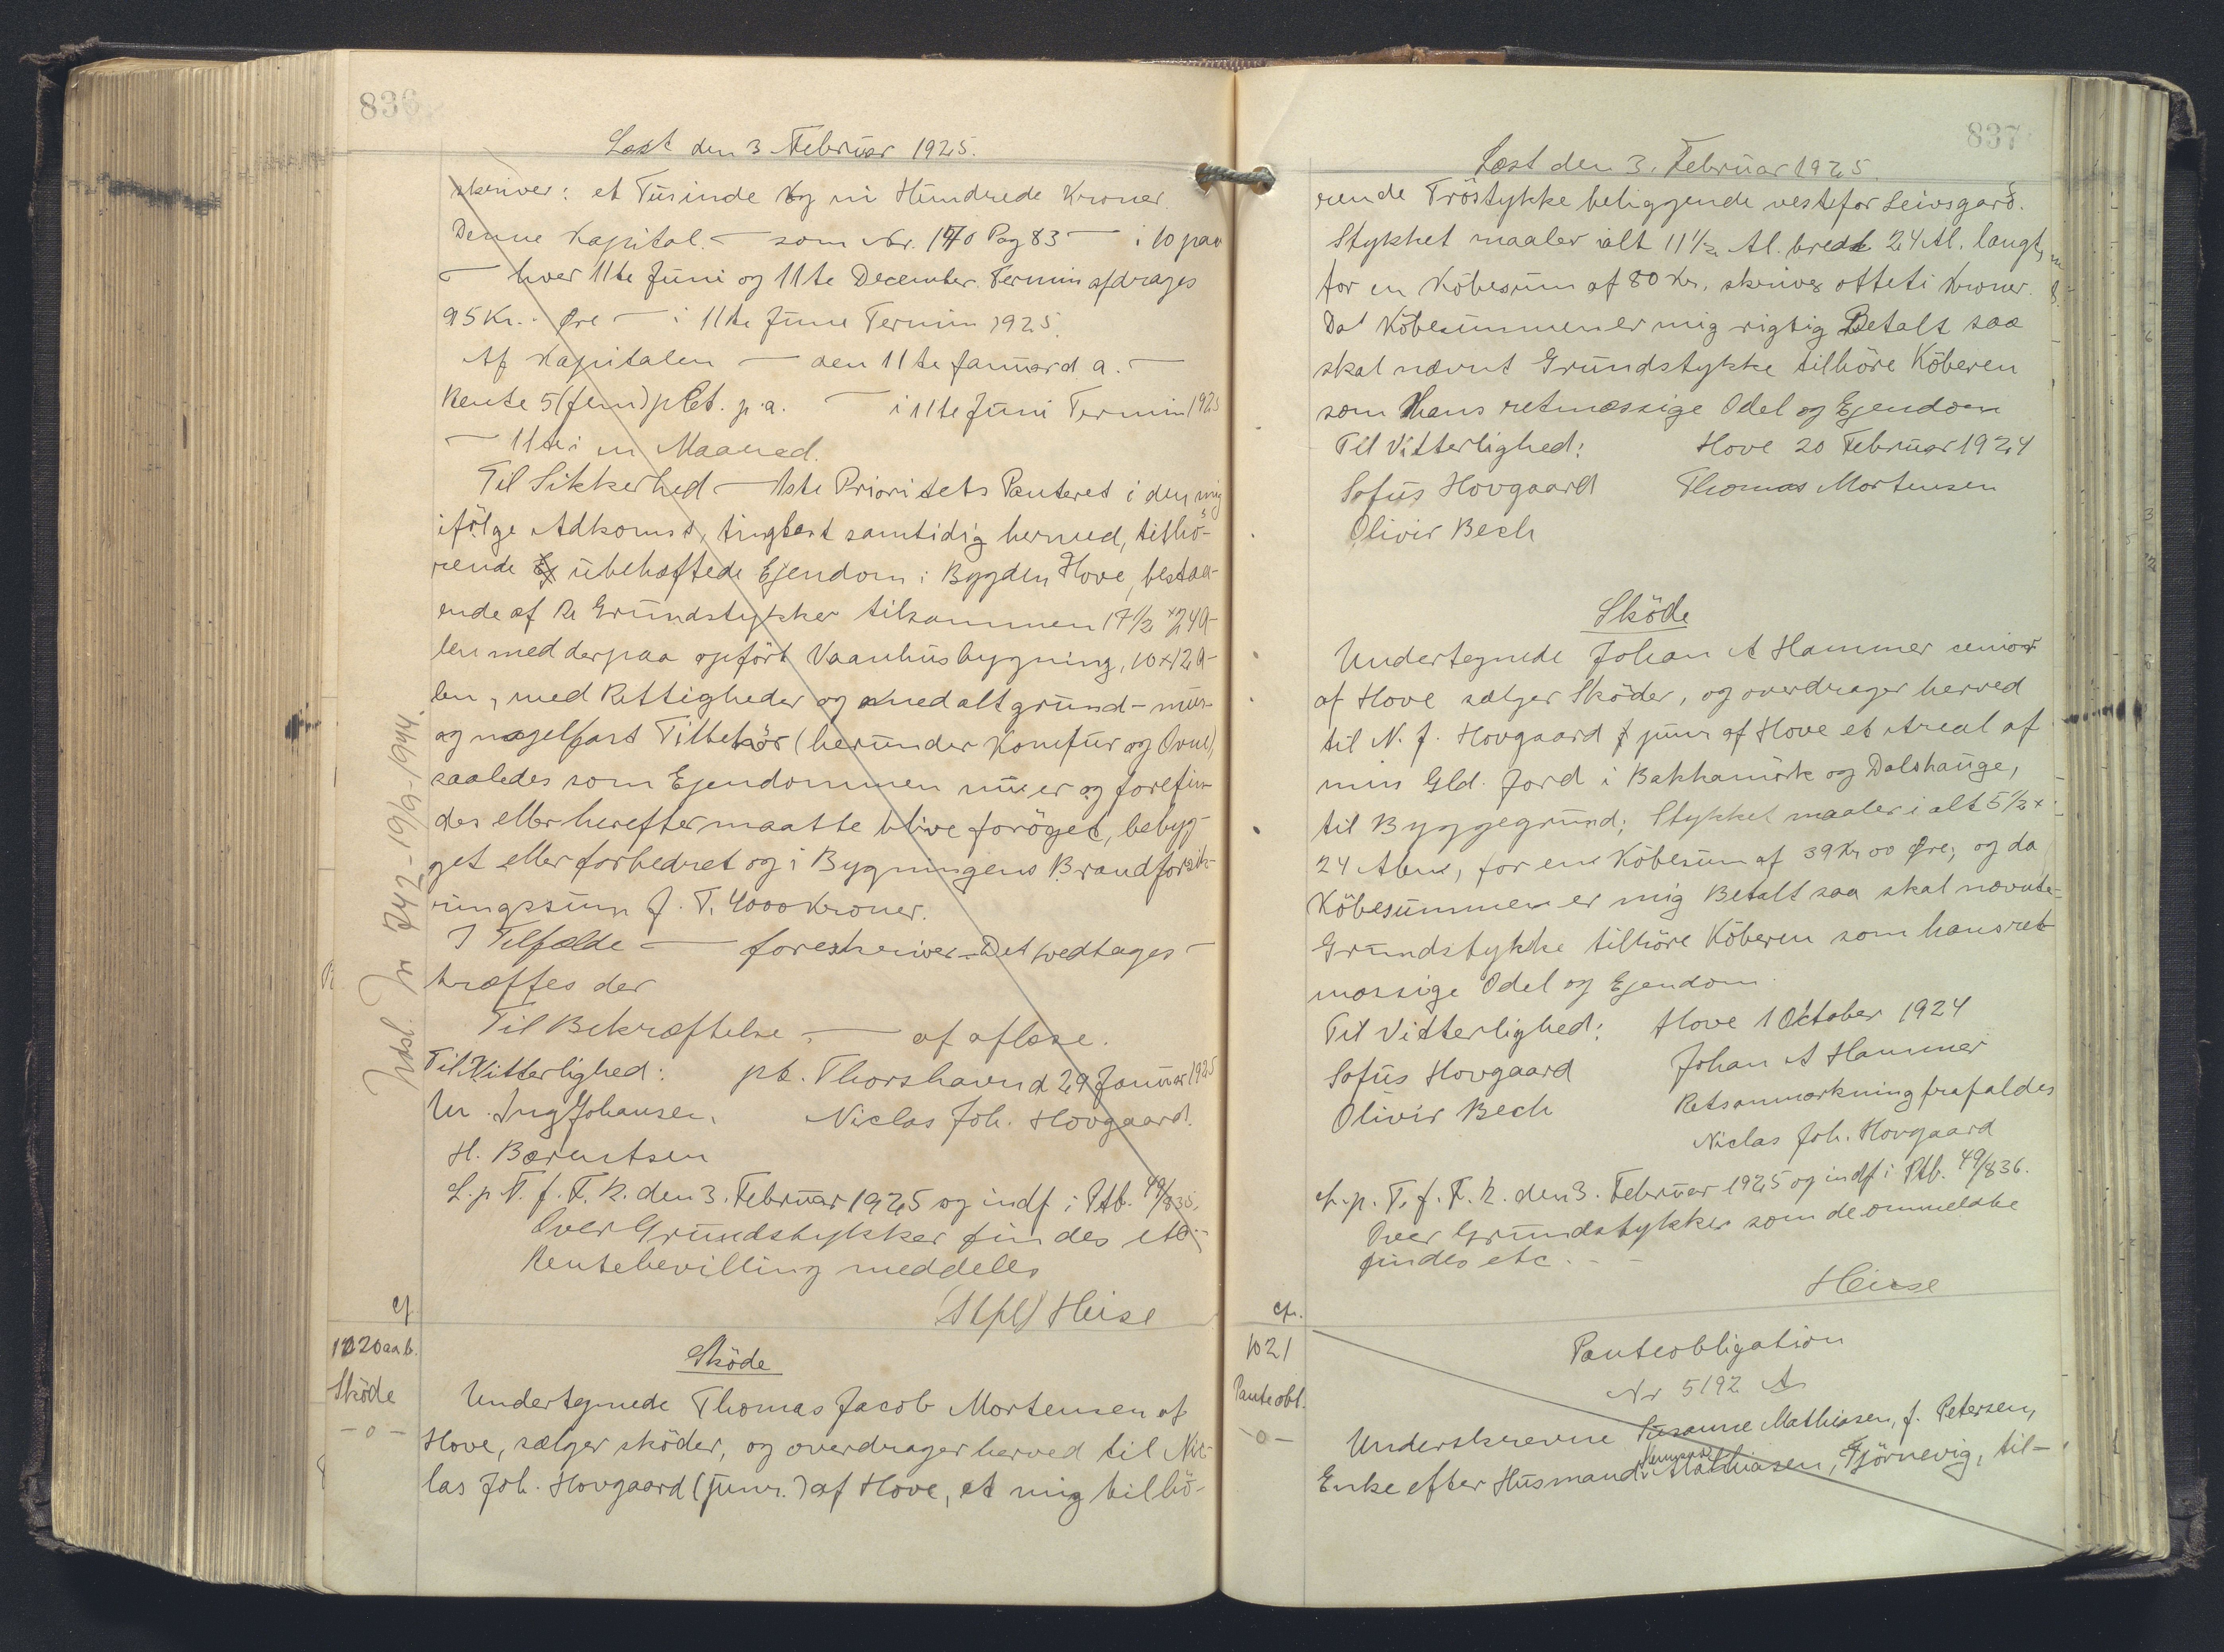 836
Læst den 3 Februar 1925.
skriver: et Tusinde og ni Hundrede Kroner.
Denne Kapital. — som Nr. 170 Pag 83 — i 10 paa
— hver 11te Juni og 11te December Termin afdrages
95 Kr. - Øre — i 11te Juni Termin 1925.
Af Kapitalen — den 11te Januar d. a. —
Rente 5 (fem) pCt. p. a. — i 11te Juni Termin 1925
— 11te i en Maaned.
Til Sikkerhed — 1ste Prioritets Panteret i den mig
ifölge Adkomst, tinglæst samtidig hermed, tilhö-
rende ubehæftede Ejendom i Bygden Hove, bestaa-
ende af Grundstykker tilsammen 17½ x 24 A-
len med derpaa opfört Vaanhusbygning, 10 x 12 A-
len, med Rettigheder og med alt grund- mur-
og nagelfast Tilbehör (herunder Komfur og Ovne),
saaledes som Ejendommen nu er og forefin-
des eller herefter maatte blive foröget, bebyg-
get eller forbedret og i Bygningens Brandforsik-
ringssum f. T. 4000 Kroner.
I Tilfælde — foreskriver — Det vedtages —
træffes der
Til Bekræftelse — af aflæse.
Til Vitterlighed: pt. Thorshavn d 29 Januar 1925
M. Ing Johansen. Niclas Joh. Hovgaard.
H. Bærentsen
L. p. T. f. F. R. den 3. Februar 1925 og indf i Ptb. 49/835.
Over Grundstykker findes etc.
Rentebevilling meddeles
Heise
Udsl. Jr 742 - 19/9 - 1944.
cf.
1020 a a b.
Sköde
- 0 -
Sköde
Undertegnede Thomas Jacob Mortensen af
Hove, sælger sköder, og overdrager herved til Nic-
las Joh. Hovgaard (junr.) af Hove, et mig tilhö-
837
Læst den 3. Februar 1925.
rende Tröstykke beliggende vestefor Leivsgard.
Stykket maaler ialt 11½ Al. bredt 24 Al. langt,
for en Köbesum af 80 Kr. skriver otteti Kroner.
Da Köbesummen er mig rigtig Betalt saa
skal nævnt Grundstykke tilhöre Köberen
som Hans retmæssige Odel og Ejendom
Til Vitterlighed: Hove 20 Februar 1924
Sofus Hovgaard Thomas Mortensen
Olivir Bech
Sköde
Undertegnede Johan A Hammer senior
af Hove sælger Sköder, og overdrager herved
til N. J. Hovgaard junr af Hove et Areal af
min Gld. Jord i Bakkamörk og Dalshauge,
til Byggegrund; Stykket maaler i alt 5½ x
24 Alne, for en Köbesum af 39 Kr 00 Øre; og da
Köbesummen er mig Betalt saa skal nævnte
Grundstykke tilhöre Köberen som hans ret-
mæssige Odel og Ejendom.
Til Vitterlighed: Hove 1 Oktober 1924
Sofus Hovgaard Johan A Hammer
Olivir Bech Retsanmærkning frafaldes
Niclas Joh. Hovgaard
L. p. T. f. F. R. den 3. Februar 1925 og indf i Ptb. 49/836.
Over Grundstykker som de ommeldte
findes etc. - -
Heise
cfr.
1021
Panteobl.
- 0 -
Panteobligation
Nr 5192 A
Underskrevne Susanne Mathiasen, f. Petersen,
Enke efter Husmand Mathiasen, Tjörnevig, til-